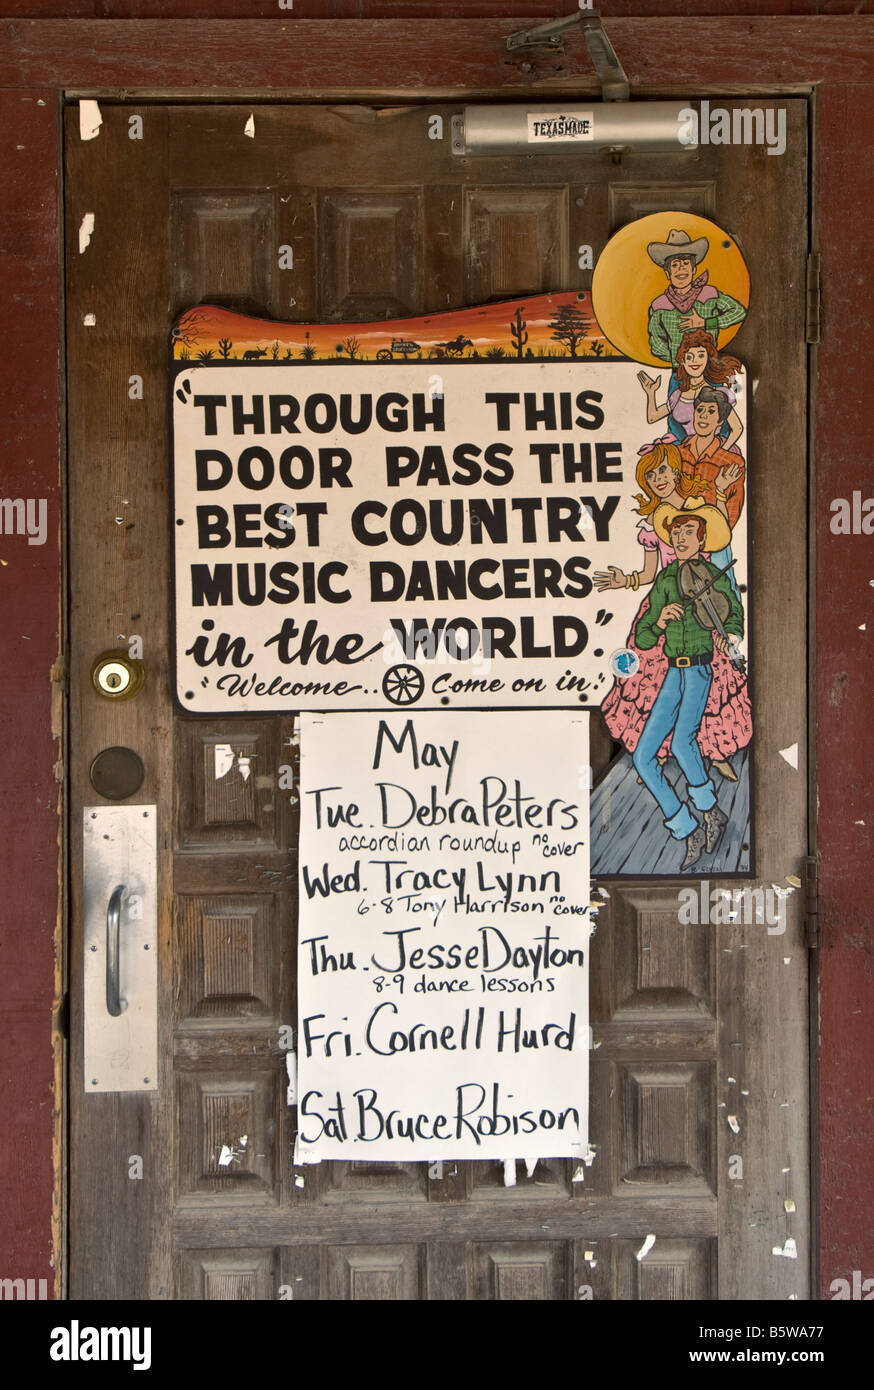 TEXAS MADE
"THROUGH THIS
DOOR PASS THE
BEST COUNTRY
MUSIC DANCERS
in the WORLD."
"Welcome.. Come on in."
May
Tue. Debra Peters
accordian roundup no cover
Wed. Tracy Lynn
6-8 Tony Harrison no cover
Thu. Jesse Dayton
8-9 dance lessons
Fri. Cornell Hurd
Sat. Bruce Robison
alamy
Image ID: B5WA77
www.alamy.com